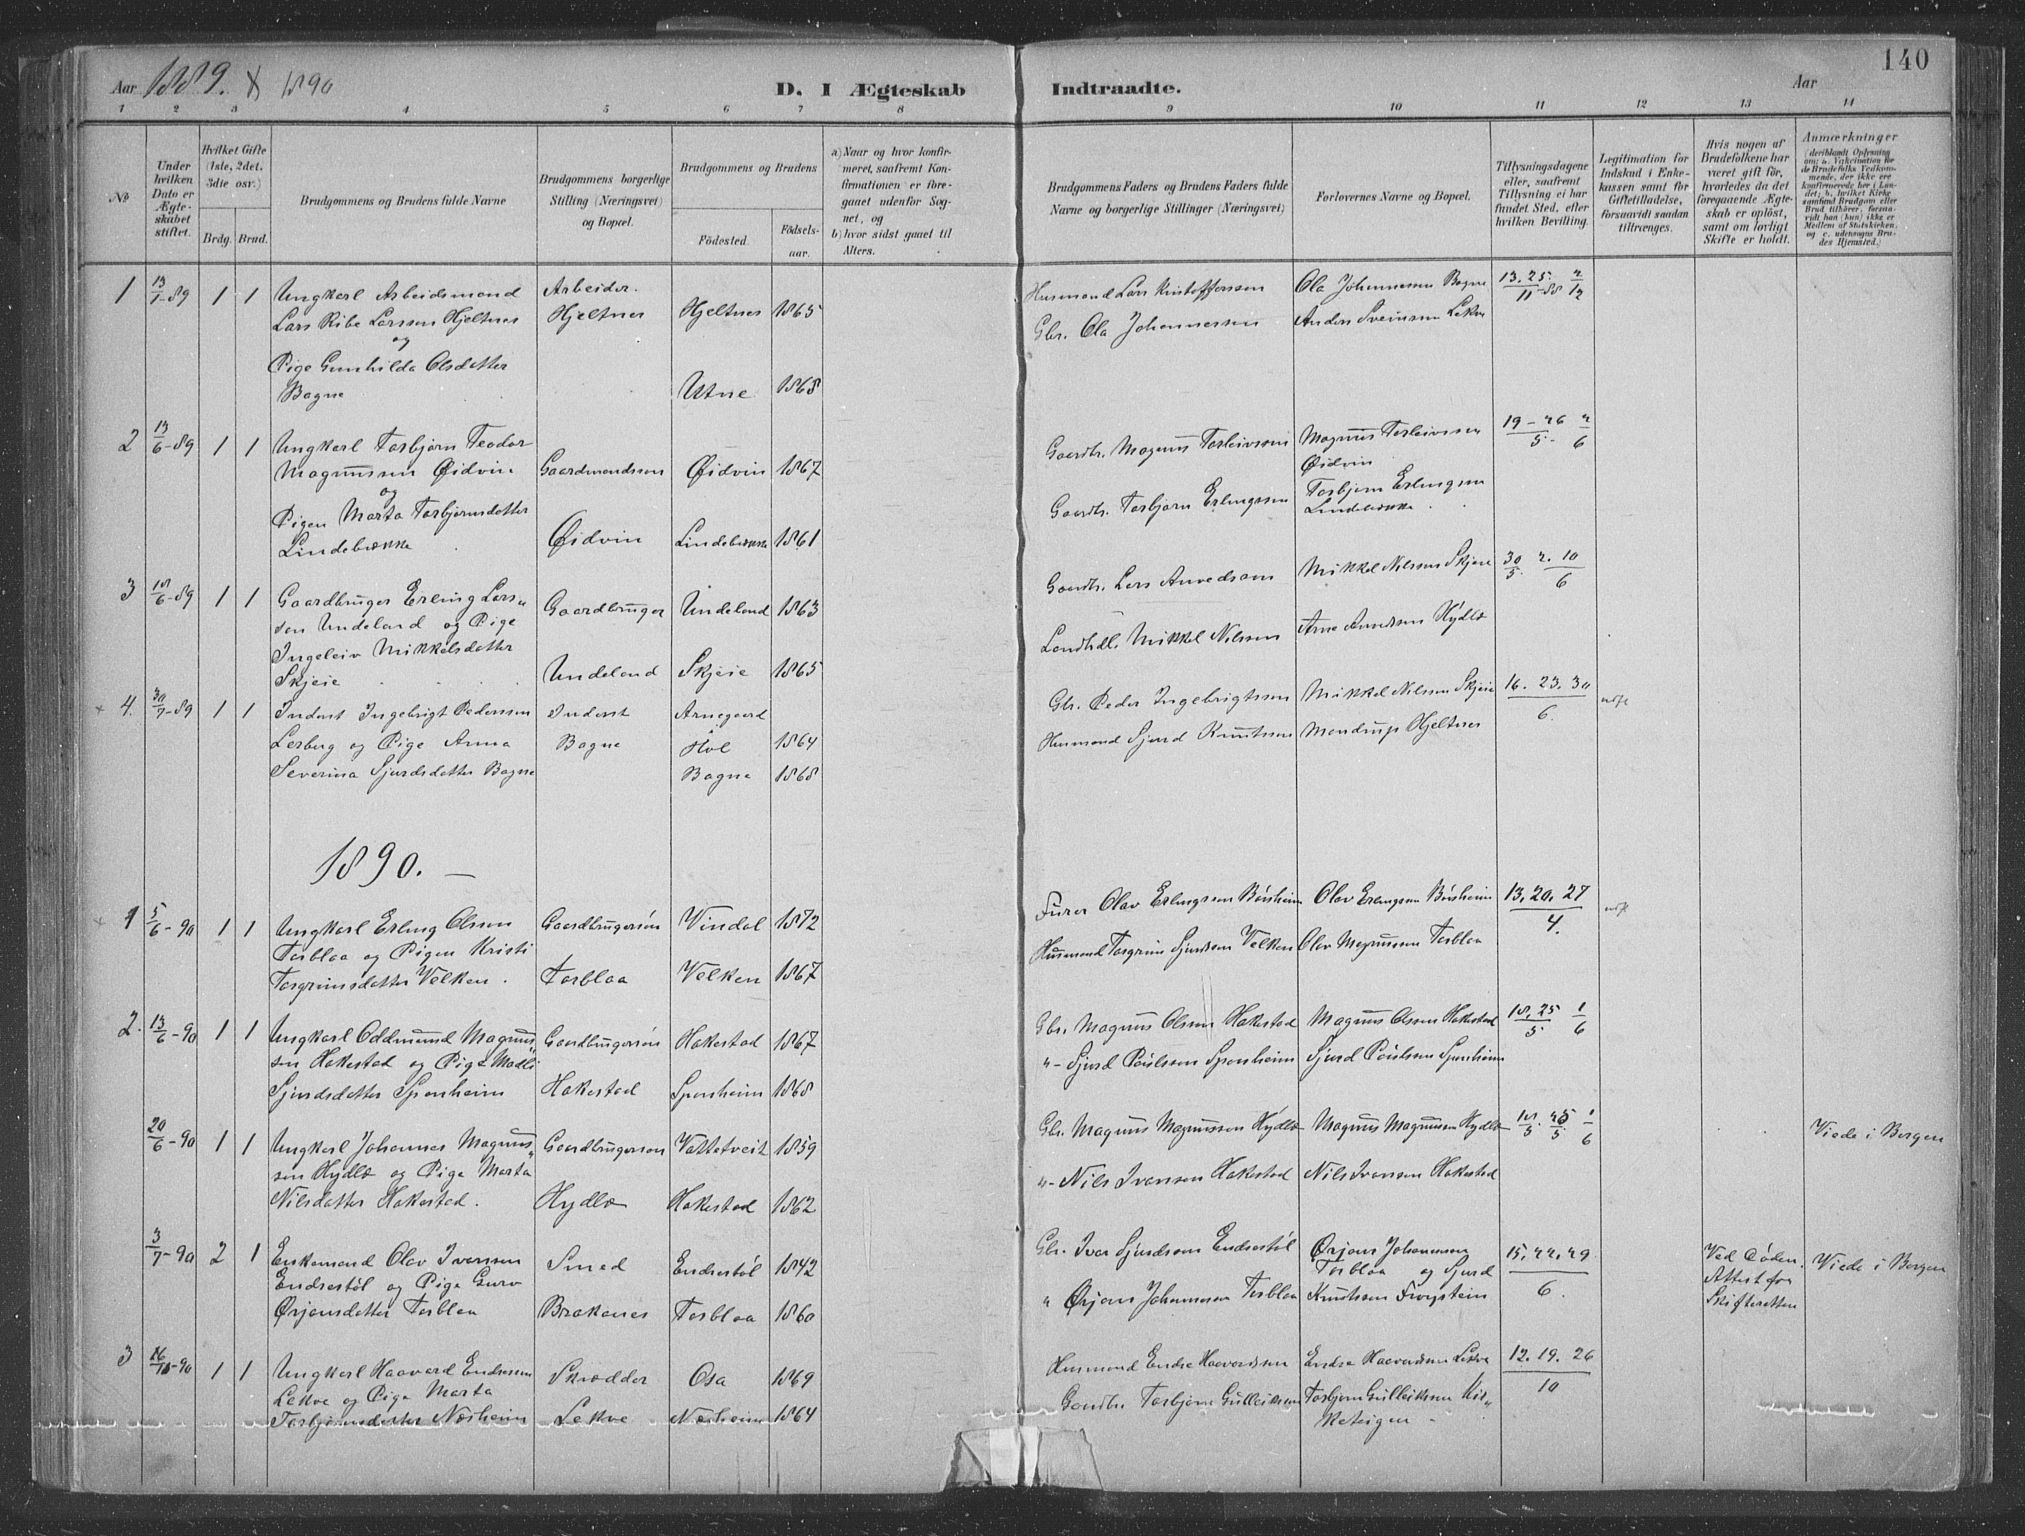 Aar 1889. & 1890
D. I Ægteskab
Indtraadte.
Aar
140
1 2 3 4 5 6 7 8 9 10 11 12 13 14
No
Under hvilken Dato er Ægteskabet stiftet.
Hvilket Gifte (1ste, 2det, 3die osv.)
Brdg. Brud.
Brudgommens og Brudens fulde Navne
Brudgommens borgerlige Stilling (Næringsvei) og Bopæl.
Brudgommens og Brudens
Fødested.
Fødselsaar.
a) Naar og hvor konfirmeret, saafremt Konfirmationen er foregaaet udenfor Sognet, og
b) hvor sidst gaaet til Alters.
Brudgommens Faders og Brudens Faders fulde Navne og borgerlige Stillinger (Næringsvei)
Forlovernes Navne og Bopæl.
Tillysningsdagene eller, saafremt Tillysning ei har fundet Sted, efter hvilken Bevilling.
Legitimation for Indskud i Enkekassen samt for Giftetilladelse, forsaavidt saadan tiltrænges.
Hvis nogen af Brudefolkene har været gift før, hvorledes da det foregaaende Ægteskab er opløst, samt om lovligt Skifte er holdt.
Anmærkninger (deriblandt Oplysning om: a. Vakcination for de Brudefolks Vedkommende, der ikke ere konfirmerede her i Landet; b. hvilket Kirkesamfund Brudgom eller Brud tilhører, forsaavidt han (hun) ikke er Medlem af Statskirken, og c. udensogns Brudes Hjemsted.)
1 13/1-89 1 1
Ungkarl Arbeidsmand
Lars Ribe Larssen Hjeltnes
og
Pige Gunhilda Olsdatter
Bagne
Arbeider
Hjeltnes
Hjeltnes 1865
Utne 1868
Husmand Lars Kristofferssen
Gbr. Ola Johannessen
Ola Johannessen Bagne
Anders Sveinsen Lekve
13. 25./11-88 2/12
2 13/6-89 1 1
Ungkarl Torbjørn Teodor
Magnussen Øidvin
og
Pigen Marta Torbjørnsdatter
Lindebrække
Gaardmandssøn
Øidvin
Øidvin 1867
Lindebrække 1861
Gaardbr. Magnus Torleivssen
Gaardbr. Torbjørn Erlingssen
Magnus Torleivssen
Øidvin
Torbjørn Erlingsen
Lindebrække
19-26/5- 2/6
3 18/6-89 1 1
Gaardbruger Erling Lars-
sen Undeland og Pige
Ingeleiv Mikkelsdatter
Skjeie
Gaardbruger
Undeland
Undeland 1863
Skjeie 1865
Gaardbr. Lars Arvedsson
Landhdl. Mikkel Nilssen
Mikkel Nilssen Skjeie
Arne Arvedssen Hydle
30/5. 2. 10/6
4. 30/7-89 1 1
Inderst Ingebrigt Pederssen
Lesberg og Pige Anna
Severina Sjursdatter Bagne
Inderst
Bagne
Arnegaard
Hol 1864
Bagne 1868
Gbr. Peder Ingebrigtssen
Husmand Sjurd Knutssen
Mikkel Nilssen Skjeie
Mandrup Hjeltnes
16. 23. 30/6.
1890.
1 5/6-90 1 1
Ungkarl Erling Olssen
Torblaa og Pigen Kristi
Torgrimsdatter Velken.
Gaardbrugersøn
Torblaa
Vindal 1872
Velken 1867
Furer Olav Erlingssen Børsheim
Husmand Torgrim Sjurdssen Velken
Olav Erlingsen Børsheim
Olav Magnussen Torblaa
13. 20. 27/4.
2. 13/6-90 1 1
Ungkarl Oddmund Magnus-
sen Hakestad og Pige Madli
Sjurdsdatter Sponheim
Gaardbrugersøn
Hakestad
Hakestad 1867
Sponheim 1868
Gbr. Magnus Olssen Hakestad
"- Sjurd Paulssen Sponheim
Magnus Olssen Hakestad
Sjurd Paulssen Sponheim
18. 25/5 1/6
20/6-90 1 1
Ungkarl Johannes Magnus-
sen Hydle og Pige Marta
Nilsdatter Hakestad.
Gaardbrugersøn
Hydle
Vattatveit 1859
Hakestad 1862
Gbr. Magnus Magnussen Hydle
"- Nils Ivarsen Hakestad
Magnus Magnussen Hydle
Nils Ivarsen Hakestad
18/5. 25/5 1/6
Viede i Bergen
3/7-90 2 1
Enkemand Olav Ivarssen
Endrestøl og Pige Guro
Ørjansdatter Torblaa
Smed
Brakenes
Endrestøl 1842
Torblaa 1860
Gbr. Ivar Sjurdssen Endrestøl
" Ørjans Johannessen Torblaa
Ørjans Johannessen
Torblaa og Sjurd
Knutssen Frøystein
15. 22. 29/6.
Ved Døden.
Attest fra
Skifteretten
Viede i Bergen
3 26/10-90 1 1
Ungkarl Haavard Endressen
Lekve og Pige Marta
Torbjørnsdatter Næsheim
Skrædder
Lekve
Osa 1869
Næsheim 1864
Husmand Endre Haavardssen
Gaardbr Torbjørn Gulleikssen
Endre Haavardssen Lekve
Torbjørn Gulleikssen
12. 19. 26/10